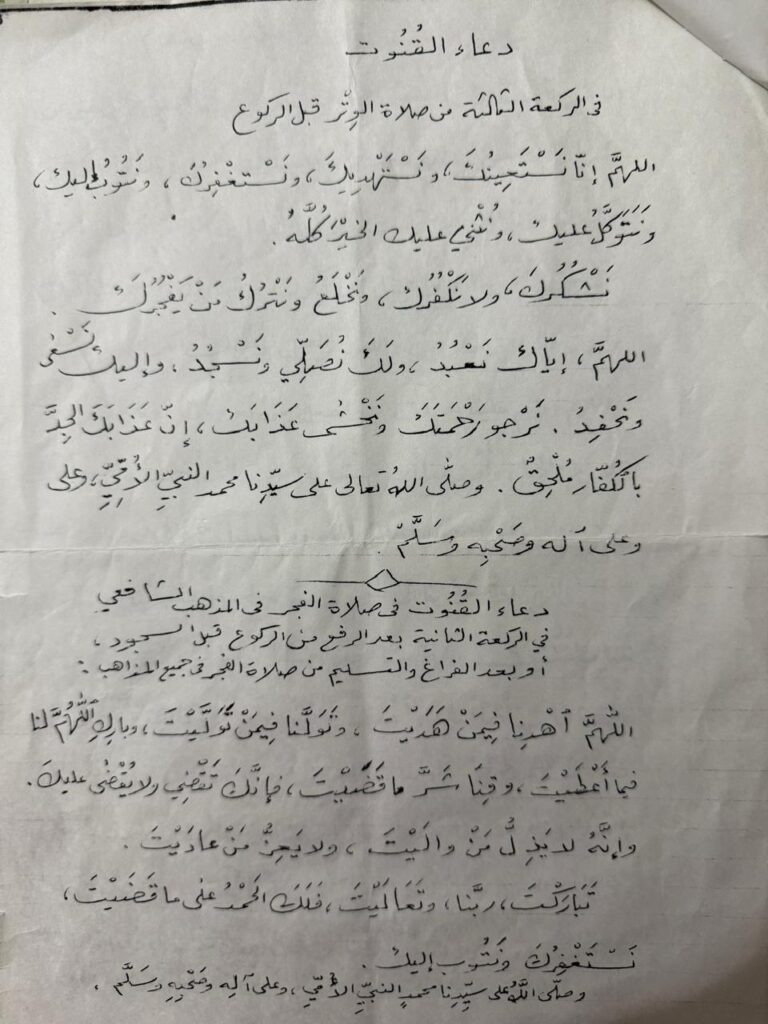 دعاء القُنُوت
في الركعة الثالثة من صلاة الوِتْر قبل الركوع
اللهمَّ إنّا نَسْتَعِينُكَ، ونَسْتَهْدِيكَ، ونَسْتغْفِرُكَ، ونَتُوبُ إليك،
ونَتَوَكَّلُ عليك، ونُثْنِي عليك الخَيْرَ كُلَّهُ.
نَشْكُرُكَ، ولا نَكْفُرُك، ونَخْلَعُ ونَتْرُكُ مَنْ يَفْجُرُكَ.
اللهمَّ، إيّاك نَعْبُدُ، ولَكَ نُصَلِّي ونَسْجُدُ، وإليك نَسْعَى
ونَحْفِدُ. نَرْجو رَحْمَتَكَ ونَخْشَى عَذَابَك، إنّ عَذَابَكَ الجِدَّ
بالكُفّارِ مُلْحِقٌ. وصلّى اللهُ تعالى على سيّدِنا محمد النبيِّ الأُمِّيِّ، وعلى
وعلى آله وصَحْبِه وسَلَّمْ.
دعاء القُنُوت في صلاة الفجر في المذهب الشافعي
في الركعة الثانية بعد الرفع من الركوع قبل السجود،
أو بعد الفراغ والتسليم من صلاة الفجر في جميع المذاهب:
اللّهمَّ ٱهْدِنا فِيمَنْ هَدَيْتَ، وتَوَلَّنا فِيمَنْ تَوَلَّيْتَ، وبارِكِ ٱللّهُمَّ لنا
فيما أَعْطَيْتَ، وقِنَا شَرَّ ما قَضَيْتَ، فإنَّكَ تَقْضِي ولا يُقْضَى عليكَ.
وإنَّهُ لا يَذِلُّ مَنْ والَيْتَ، ولا يَعِزُّ مَنْ عادَيْتَ.
تَبَارَكْتَ، ربَّنا، وتَعَالَيْتَ، فَلَكَ الحَمْدُ على ما قَضَيْتَ،
نَسْتَغْفِرُكَ ونَتُوب إليك.
وصلّى اللّهُ على سيِّدِنا محمدٍ النبيِّ الأُمِّيِّ، وعلى آلِه وصَحْبِهِ وسَلَّم،